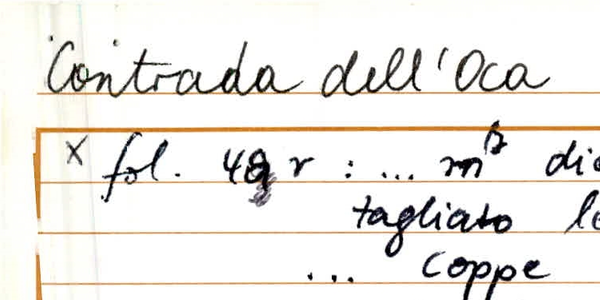 Contrada dell'Oca
x fol. 49 r : ... m° di
tagliato l
... coppe